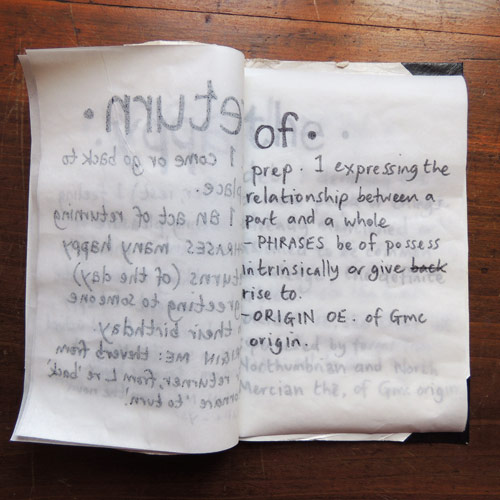 return.
1 come or go back to
place.
1 an act of returning
PHRASES many happy
turns (of the day)
greeting to someone
their birthday.
IGIN ME: the verb from
returner, from L re 'back'
ornare 'to turn'.
of.
prep. 1 expressing the
relationship between a
part and a whole
- PHRASES be of possess
intrinsically or give back
rise to.
- ORIGIN OE. of Gmc
origin.
by
Northumbrian and North
Mercian the, of Gmc origin